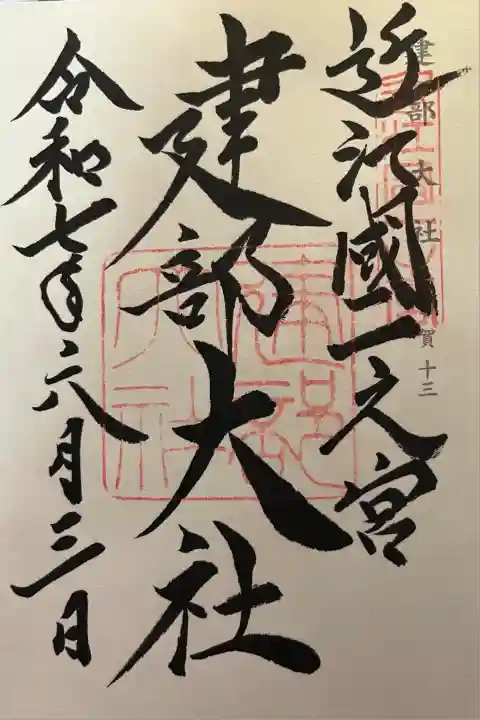 建部大社 滋賀 十三
近江國一之宮
建部大社
建部大社
令和七年六月三日